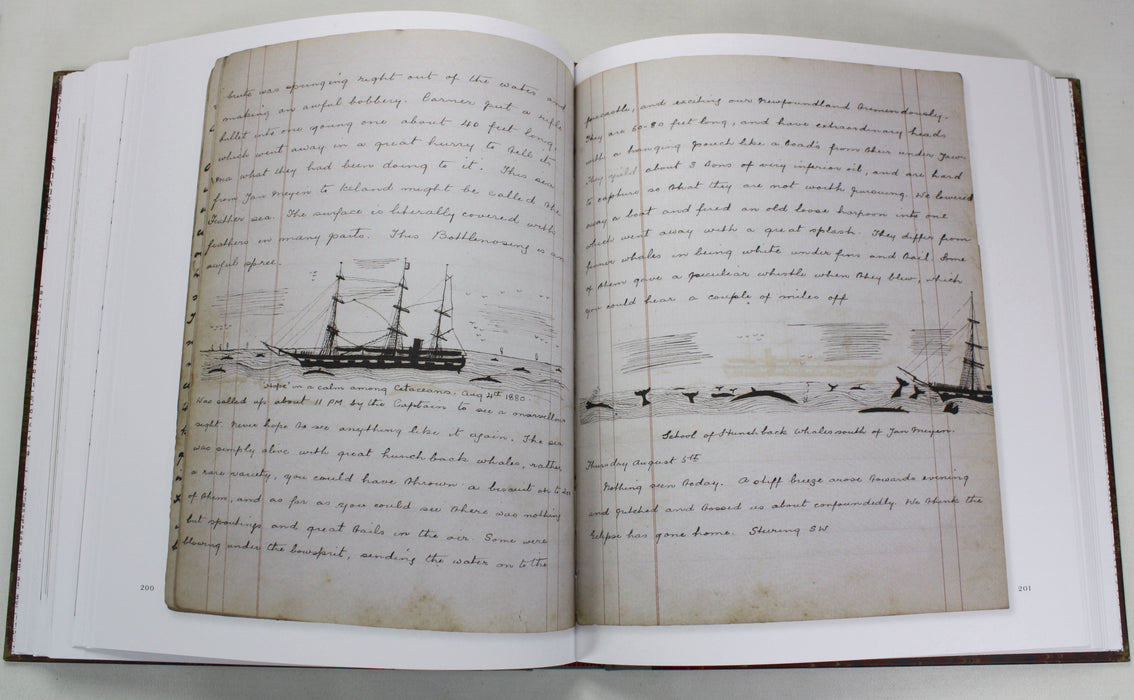 brute was springing right out of the water and
making an awful bobbery. Carner put a rifle
bullet into one young one about 40 feet long,
which went away in a great hurry to tell its
ma what they had been doing to it. This sea
from Jan Meyen to Iceland might be called the
Feather sea. The surface is literally covered with
feathers in many parts. This Bottlenosing is an
awful spree.
'Hope' in a calm among Cetaceans. Aug 4th 1880.
Was called up about 11 PM by the Captain to see a marvellous
sight. Never hope to see anything like it again. The sea
was simply alive with great hunchback whales, rather
a rare variety, you could have thrown a biscuit on to 200
of them, and as far as you could see there was nothing
but spoutings and great tails in the air. Some were
blowing under the bowsprit, sending the water on to the
200
forecastle, and exciting our Newfoundland tremendously.
They are 60-80 feet long, and have extraordinary heads
with a hanging pouch like a toad's from their under jaw.
They yield about 3 tons of very inferior oil, and are hard
to capture so that they are not worth pursuing. We lowered
away a boat and fired an old loose harpoon into one
which went away with a great splash. They differ from
finner whales in being white under fins and tail. Some
of them gave a peculiar whistle when they blew, which
you could hear a couple of miles off
School of Hunchback whales south of Jan Meyen.
Thursday August 5th
Nothing seen today. A stiff breeze arose towards evening
and pitched and tossed us about confoundedly. We think the
Eclipse has gone home. Steering SW
201